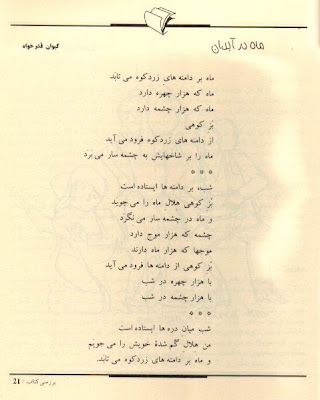 ماه در آبدان
کیوان قدرخواه
ماه بر دامنه های زردکوه می تابد
ماه که هزار چهره دارد
ماه که هزار چشمه دارد
بُز کوهی
از دامنه های زردکوه فرود می آید
ماه را بر شاخهایش به چشمه سار می برد
* * *
شب، بر دامنه ها ایستاده است
بُز کوهی هلال ماه را می جوید
و ماه در چشمه سار می نگرد
چشمه که هزار موج دارد
موجها که هزار ماه دارند
بُز کوهی از دامنه ها فرود می آید
با هزار چهره در شب
با هزار چشمه در شب
* * *
شب میان دره ها ایستاده است
من هلال گم شدهٔ خویش را می جویم
و ماه بر دامنه های زردکوه می تابد.
بررسی کتاب / 21